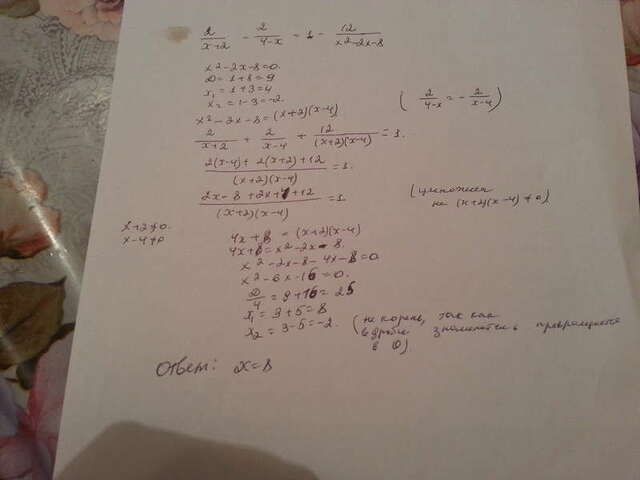 2/(x+2) - 2/(4-x) = 1 - 12/(x²-2x-8)
x²-2x-8=0.
D=1+8=9
x₁=1+3=4
x₂=1-3=-2.
x²-2x-8=(x+2)(x-4)
(2/(4-x) = -2/(x-4))
2/(x+2) + 2/(x-4) + 12/((x+2)(x-4)) = 1.
(2(x-4)+2(x+2)+12)/((x+2)(x-4)) = 1.
(2x-8+2x+4+12)/((x+2)(x-4)) = 1
(умножили
на (x+2)(x-4)≠0)
x+2≠0.
x-4≠0
4x+8=(x+2)(x-4)
4x+8=x²-2x-8.
x²-2x-8-4x-8=0
x²-6x-16=0.
D/4=9+16=25
x₁=3+5=8
x₂=3-5=-2.
(не корень, так как
в дроби знаменатель превращается
в 0).
Ответ: x=8